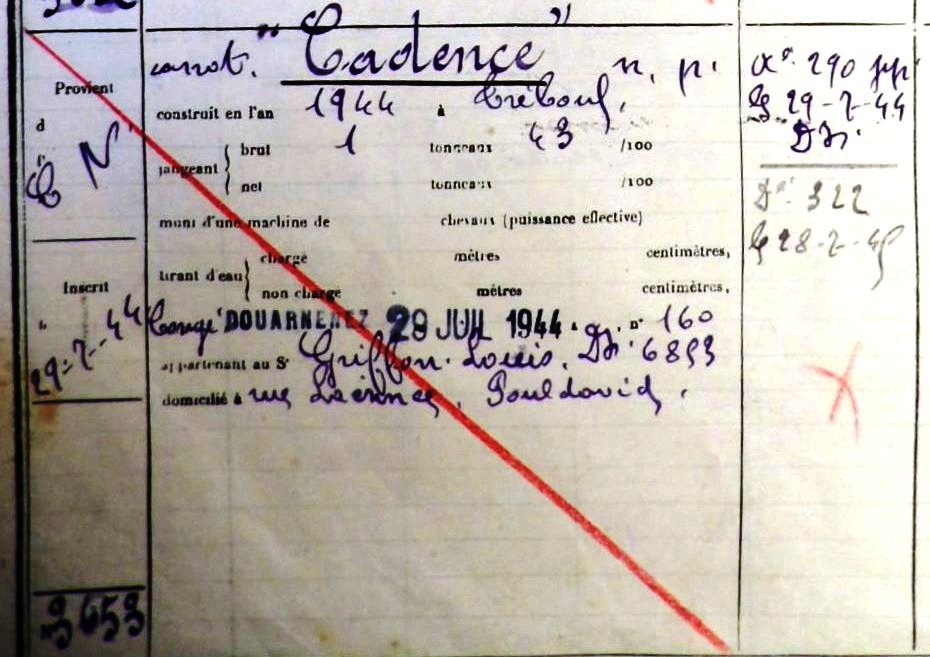 canot. "Cadence" n. p.
Provient
d
C N
construit en l'an 1944 à Tréboul,
jaugeant { brut 1 tonneaux 43 /100
net tonneaux /100
muni d'une machine de chevaux (puissance effective)
tirant d'eau { chargé mètres centimètres,
non chargé mètres centimètres,
Inscrit
29-7-44
Congé DOUARNENEZ 29 JUIL 1944 n° 160
appartenant au Sr Griffon Louis. Dz. 6893
domicilié à rue Laënnec, Pouldavid,
Ar. 290
29-7-44
Dz.
Dt. 322
28-2-45
3653